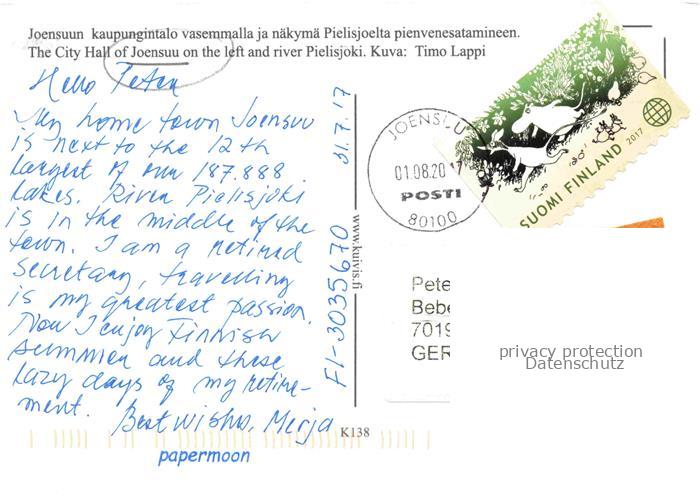 Joensuun kaupungintalo vasemmalla ja näkymä Pielisjoelta pienvenesatamineen.
The City Hall of Joensuu on the left and river Pielisjoki. Kuva: Timo Lappi
Hello Peter
My home town Joensuu
is next to the 12th
largest of our 187.888
lakes. River Pielisjoki
is in the middle of the
town. I am a retired
secretary, travelling
is my greatest passion.
Now I enjoy Finnish
summer and these
lazy days of my retire-
ment. Best wishes, Merja
papermoon
31.7.17
FI-3035670
www.kuivis.fi
K138
JOENSUU
01.08.2017
POSTI
80100
SUOMI FINLAND 2017
Pete
Bebe
7019
GER
privacy protection
Datenschutz